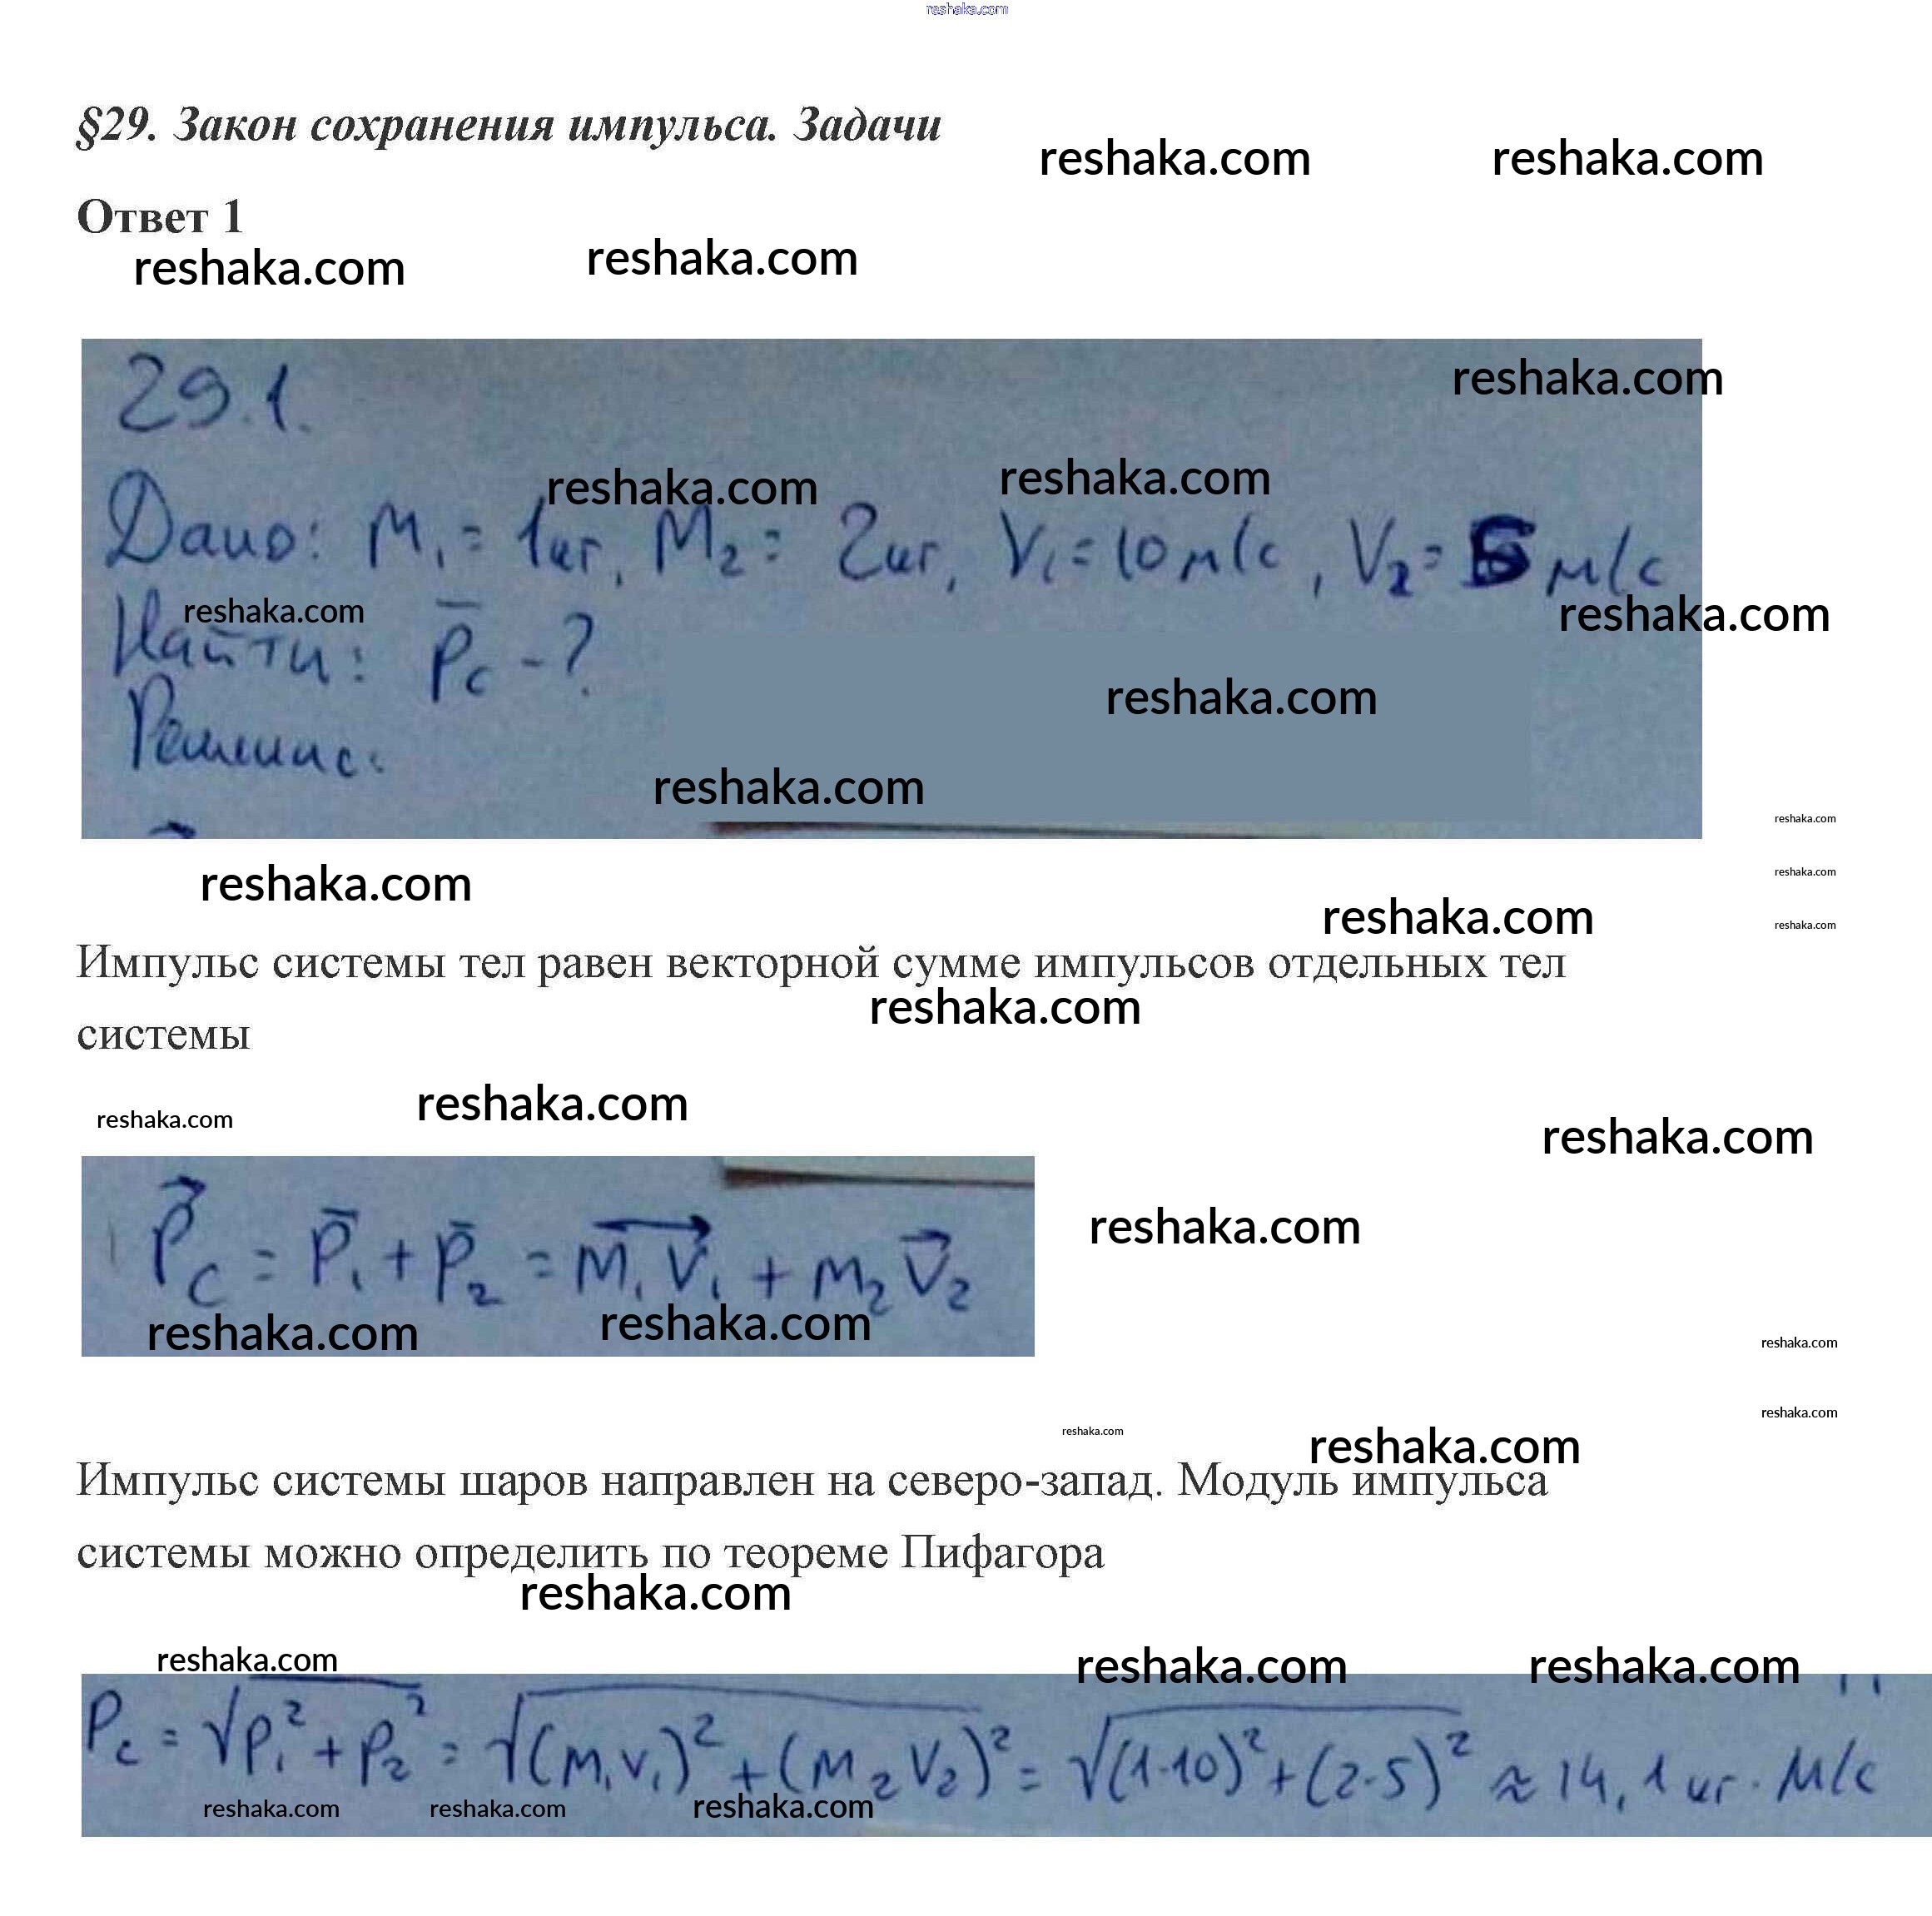 reshaka.com
§29. Закон сохранения импульса. Задачи
reshaka.com reshaka.com
Ответ 1
reshaka.com reshaka.com
29.1.
reshaka.com
reshaka.com reshaka.com
Дано: m₁ = 1кг, m₂ = 2кг, V₁ = 10 м/с, V₂ = 5 м/с
reshaka.com reshaka.com
Найти: p̅c - ?
reshaka.com
Решение:
reshaka.com
reshaka.com
reshaka.com
reshaka.com
reshaka.com
reshaka.com
Импульс системы тел равен векторной сумме импульсов отдельных тел
reshaka.com
системы
reshaka.com reshaka.com reshaka.com
p⃗c = p̅₁ + p̅₂ = m₁v₁ + m₂v⃗₂
reshaka.com
reshaka.com reshaka.com
reshaka.com
reshaka.com
reshaka.com reshaka.com
Импульс системы шаров направлен на северо-запад. Модуль импульса
системы можно определить по теореме Пифагора
reshaka.com
reshaka.com reshaka.com reshaka.com
Pc = √p₁² + p₂² = √(m₁v₁)² + (m₂v₂)² = √(1·10)² + (2·5)² ≈ 14,1 кг · м/с
reshaka.com reshaka.com reshaka.com